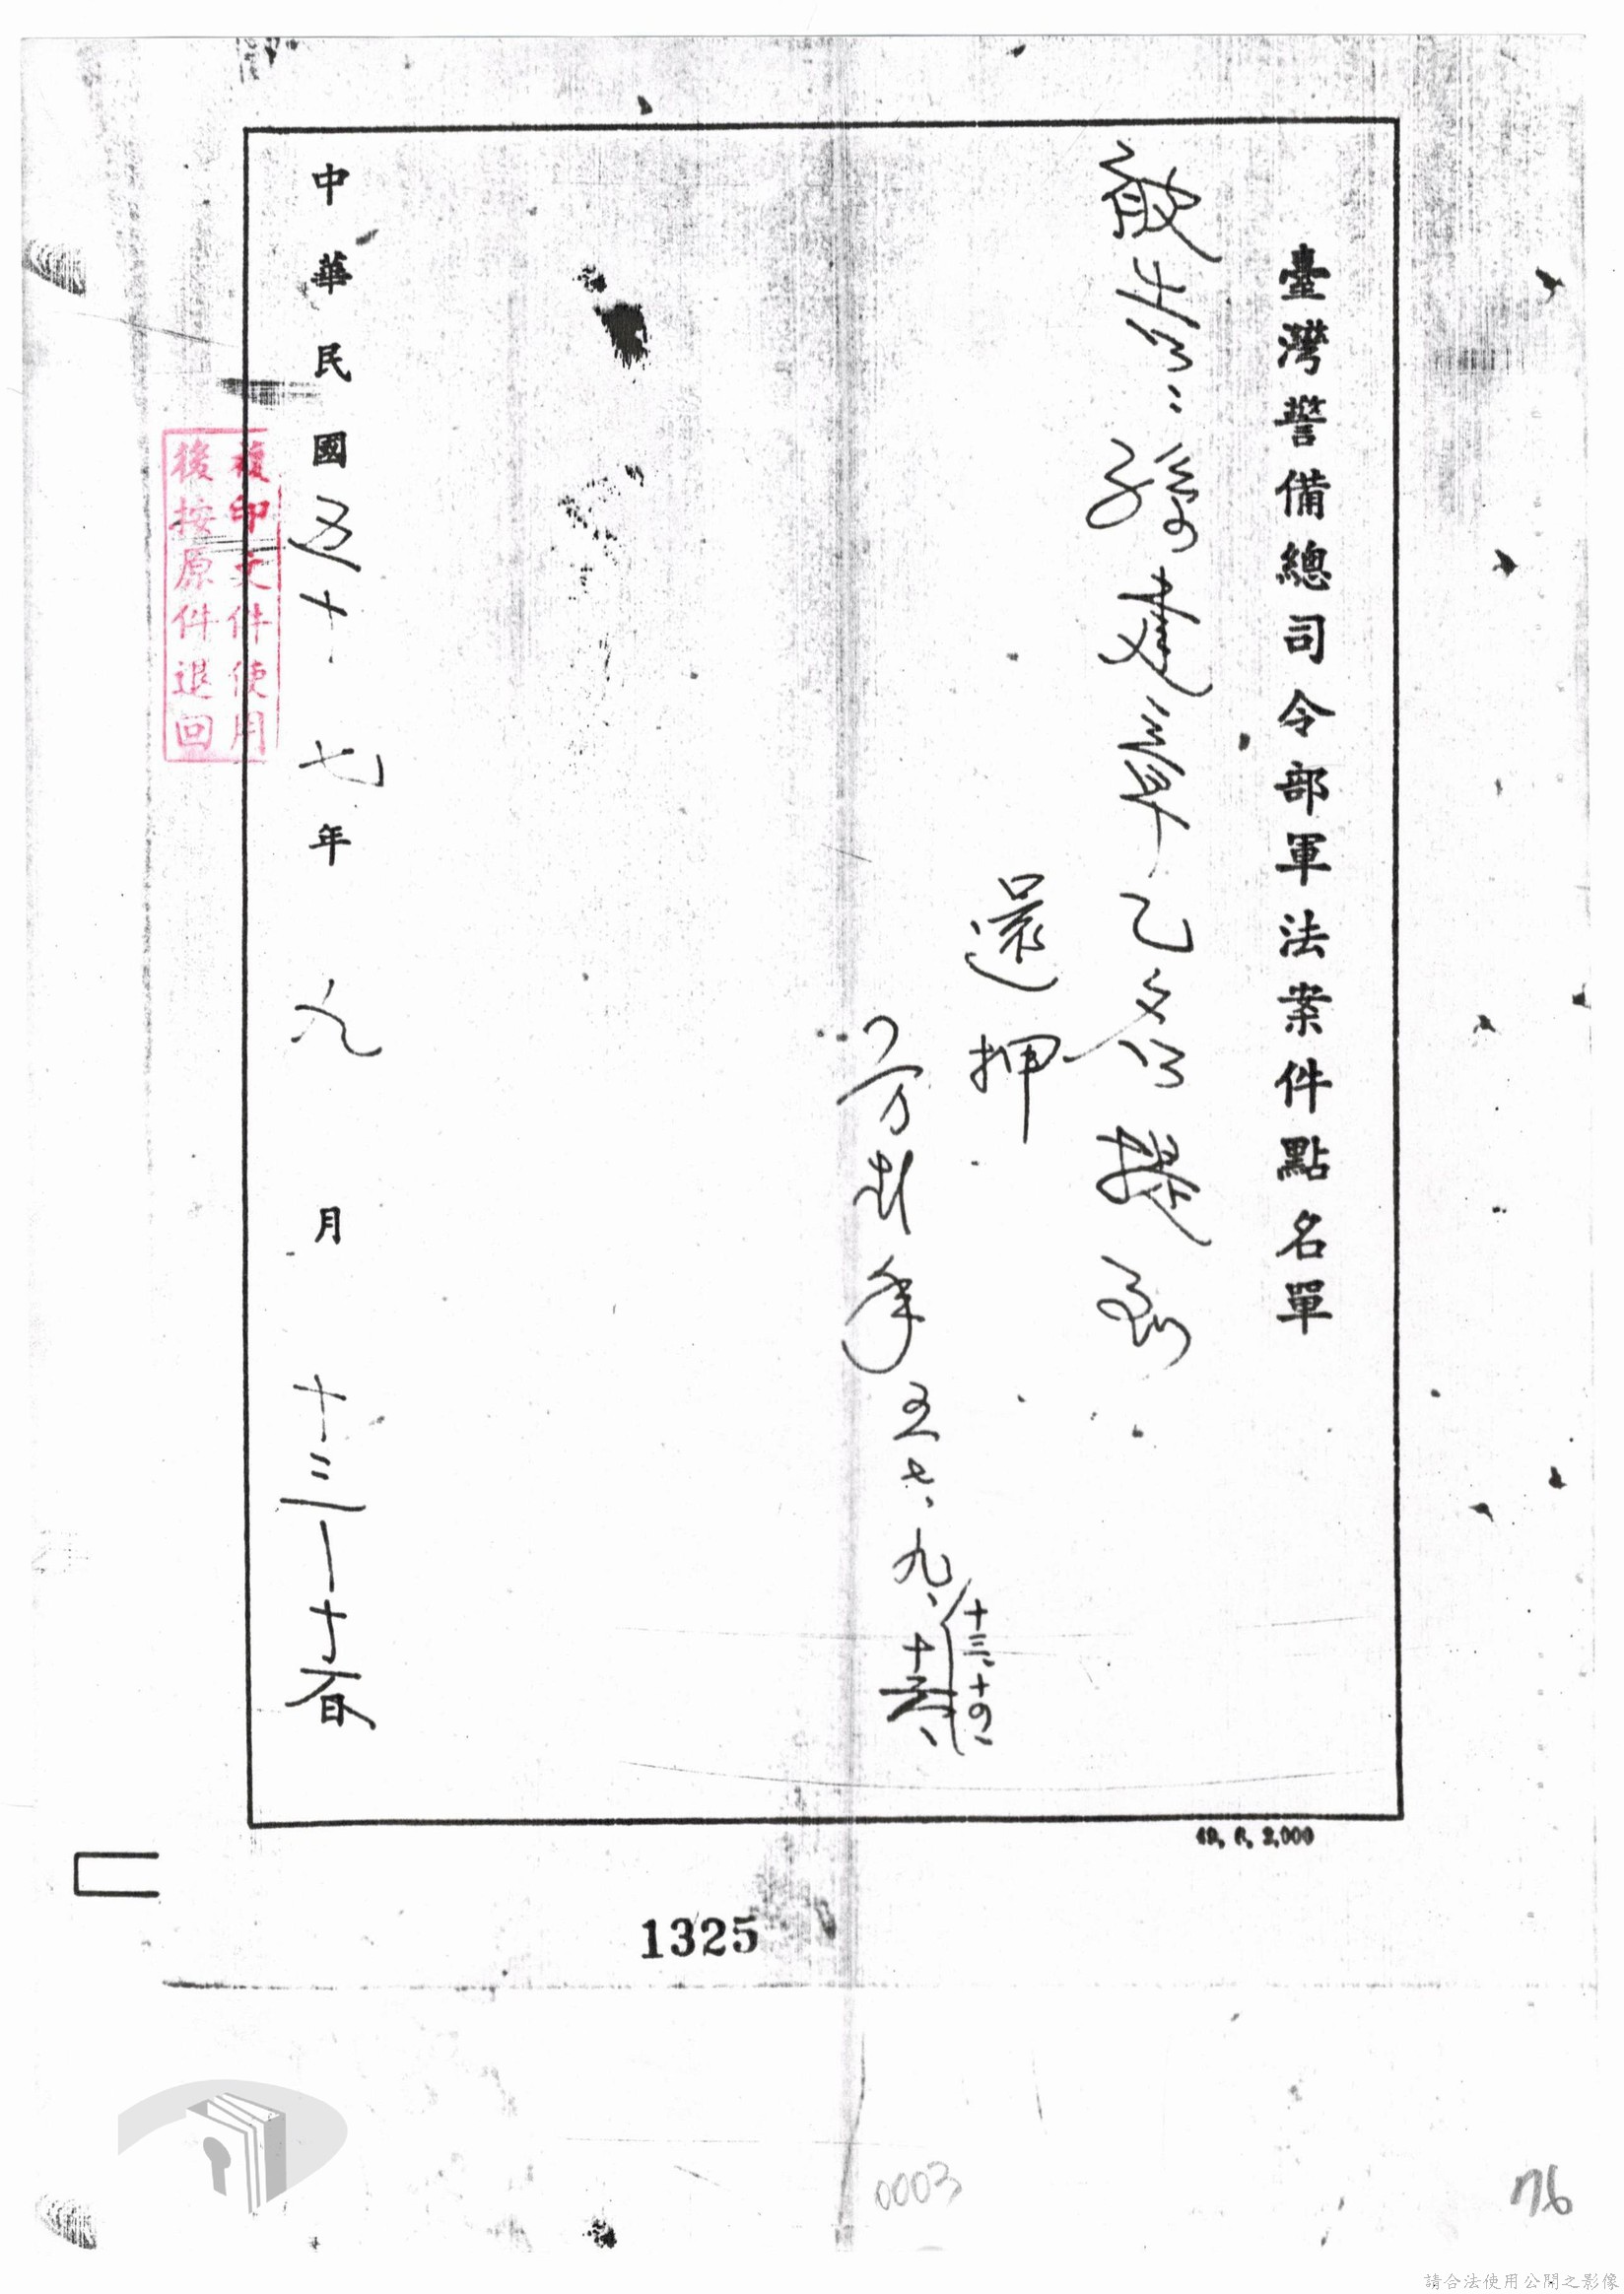 臺灣警備總司令部軍法案件點名單
被告:孫建章乙名提
還押
五七、九、十三、十四、
中華民國五十七年九月十三—十六日
複印文件使用
後按原件退回
49. 6. 2,000
1325
0003
76
請合法使用公開之影像